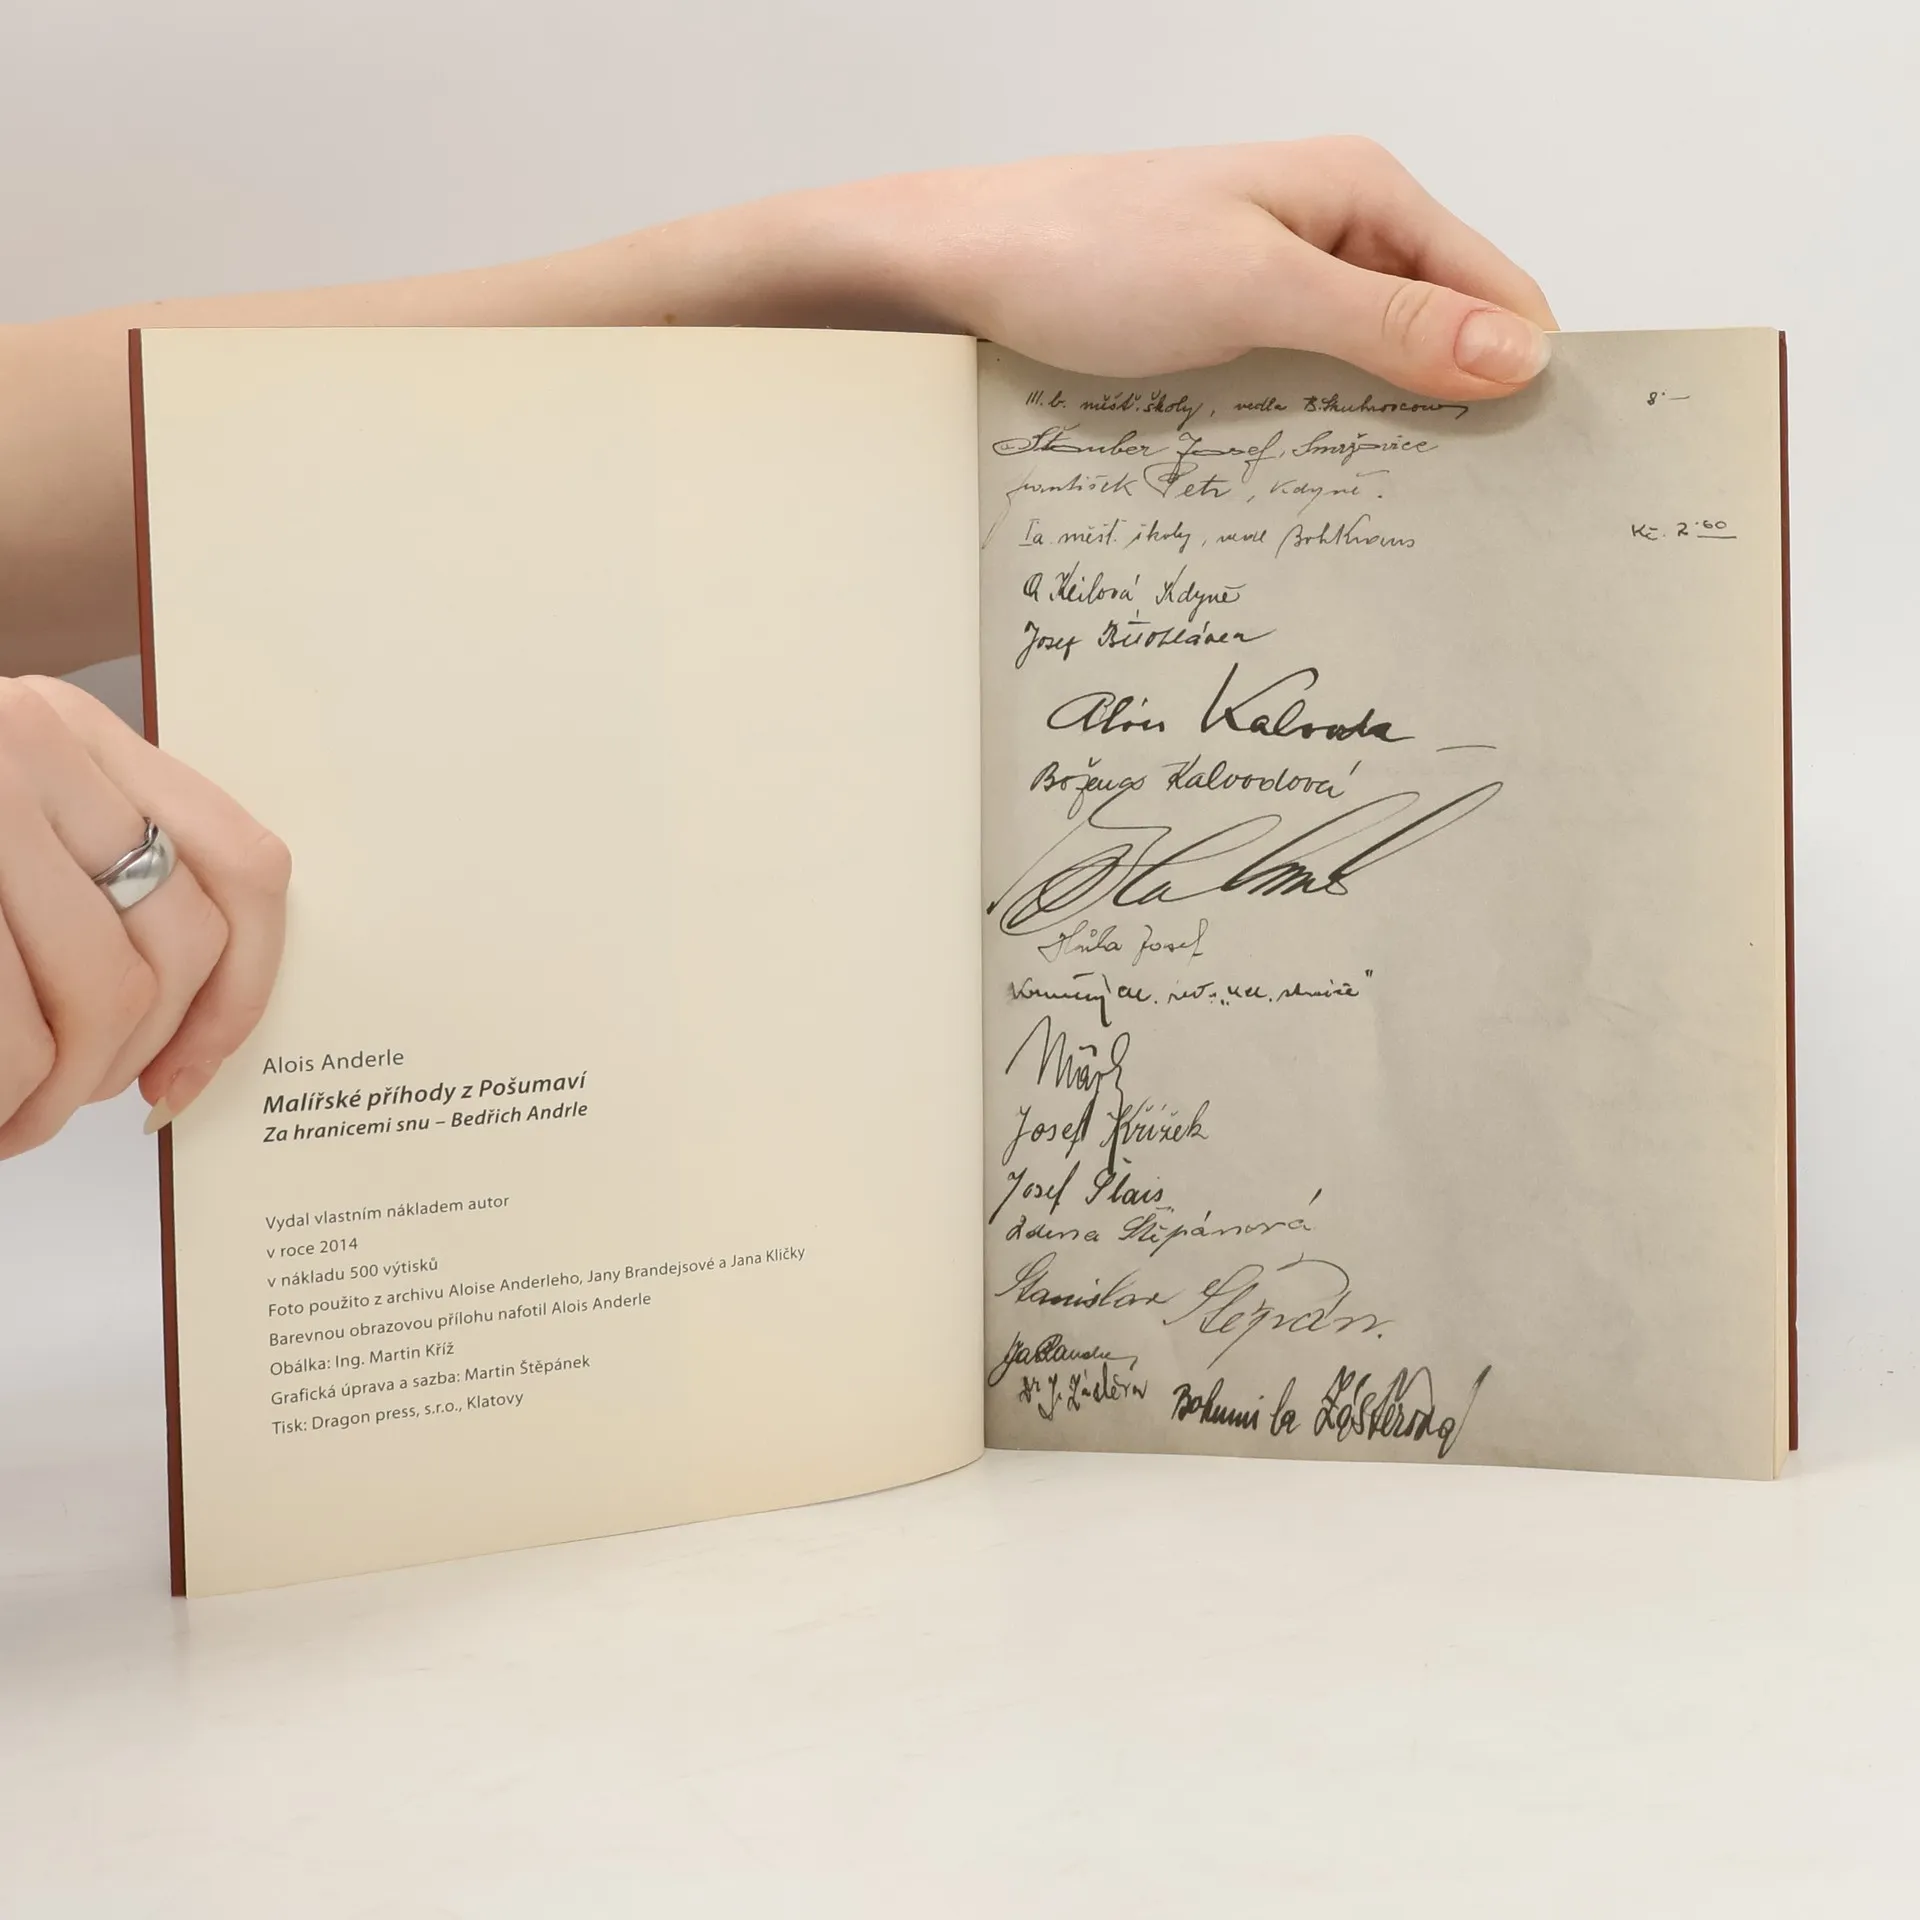 Alois Anderle
Malířské příhody z Pošumaví
Za hranicemi snu – Bedřich Andrle
Vydal vlastním nákladem autor
v roce 2014
v nákladu 500 výtisků
Foto použito z archivu Aloise Anderleho, Jany Brandejsové a Jana Kličky
Barevnou obrazovou přílohu nafotil Alois Anderle
Obálka: Ing. Martin Kříž
Grafická úprava a sazba: Martin Štěpánek
Tisk: Dragon press, s.r.o., Klatovy
III. b. měšť. školy, vedla 8·—
Josef, Smržovice
František Petr, Kdyně.
Ia měšť. školy, vedl Boh Kraus Kč. 2·60
A Keilová Kdyně
Josef
Alois Kalvoda —
Božena Kalvodová
Hůla Josef
Josef Křížek
Josef Slais
Zdena Štěpánová
Stanislav Štěpán.
Dr J. Zástěra Bohumila Zástěrová